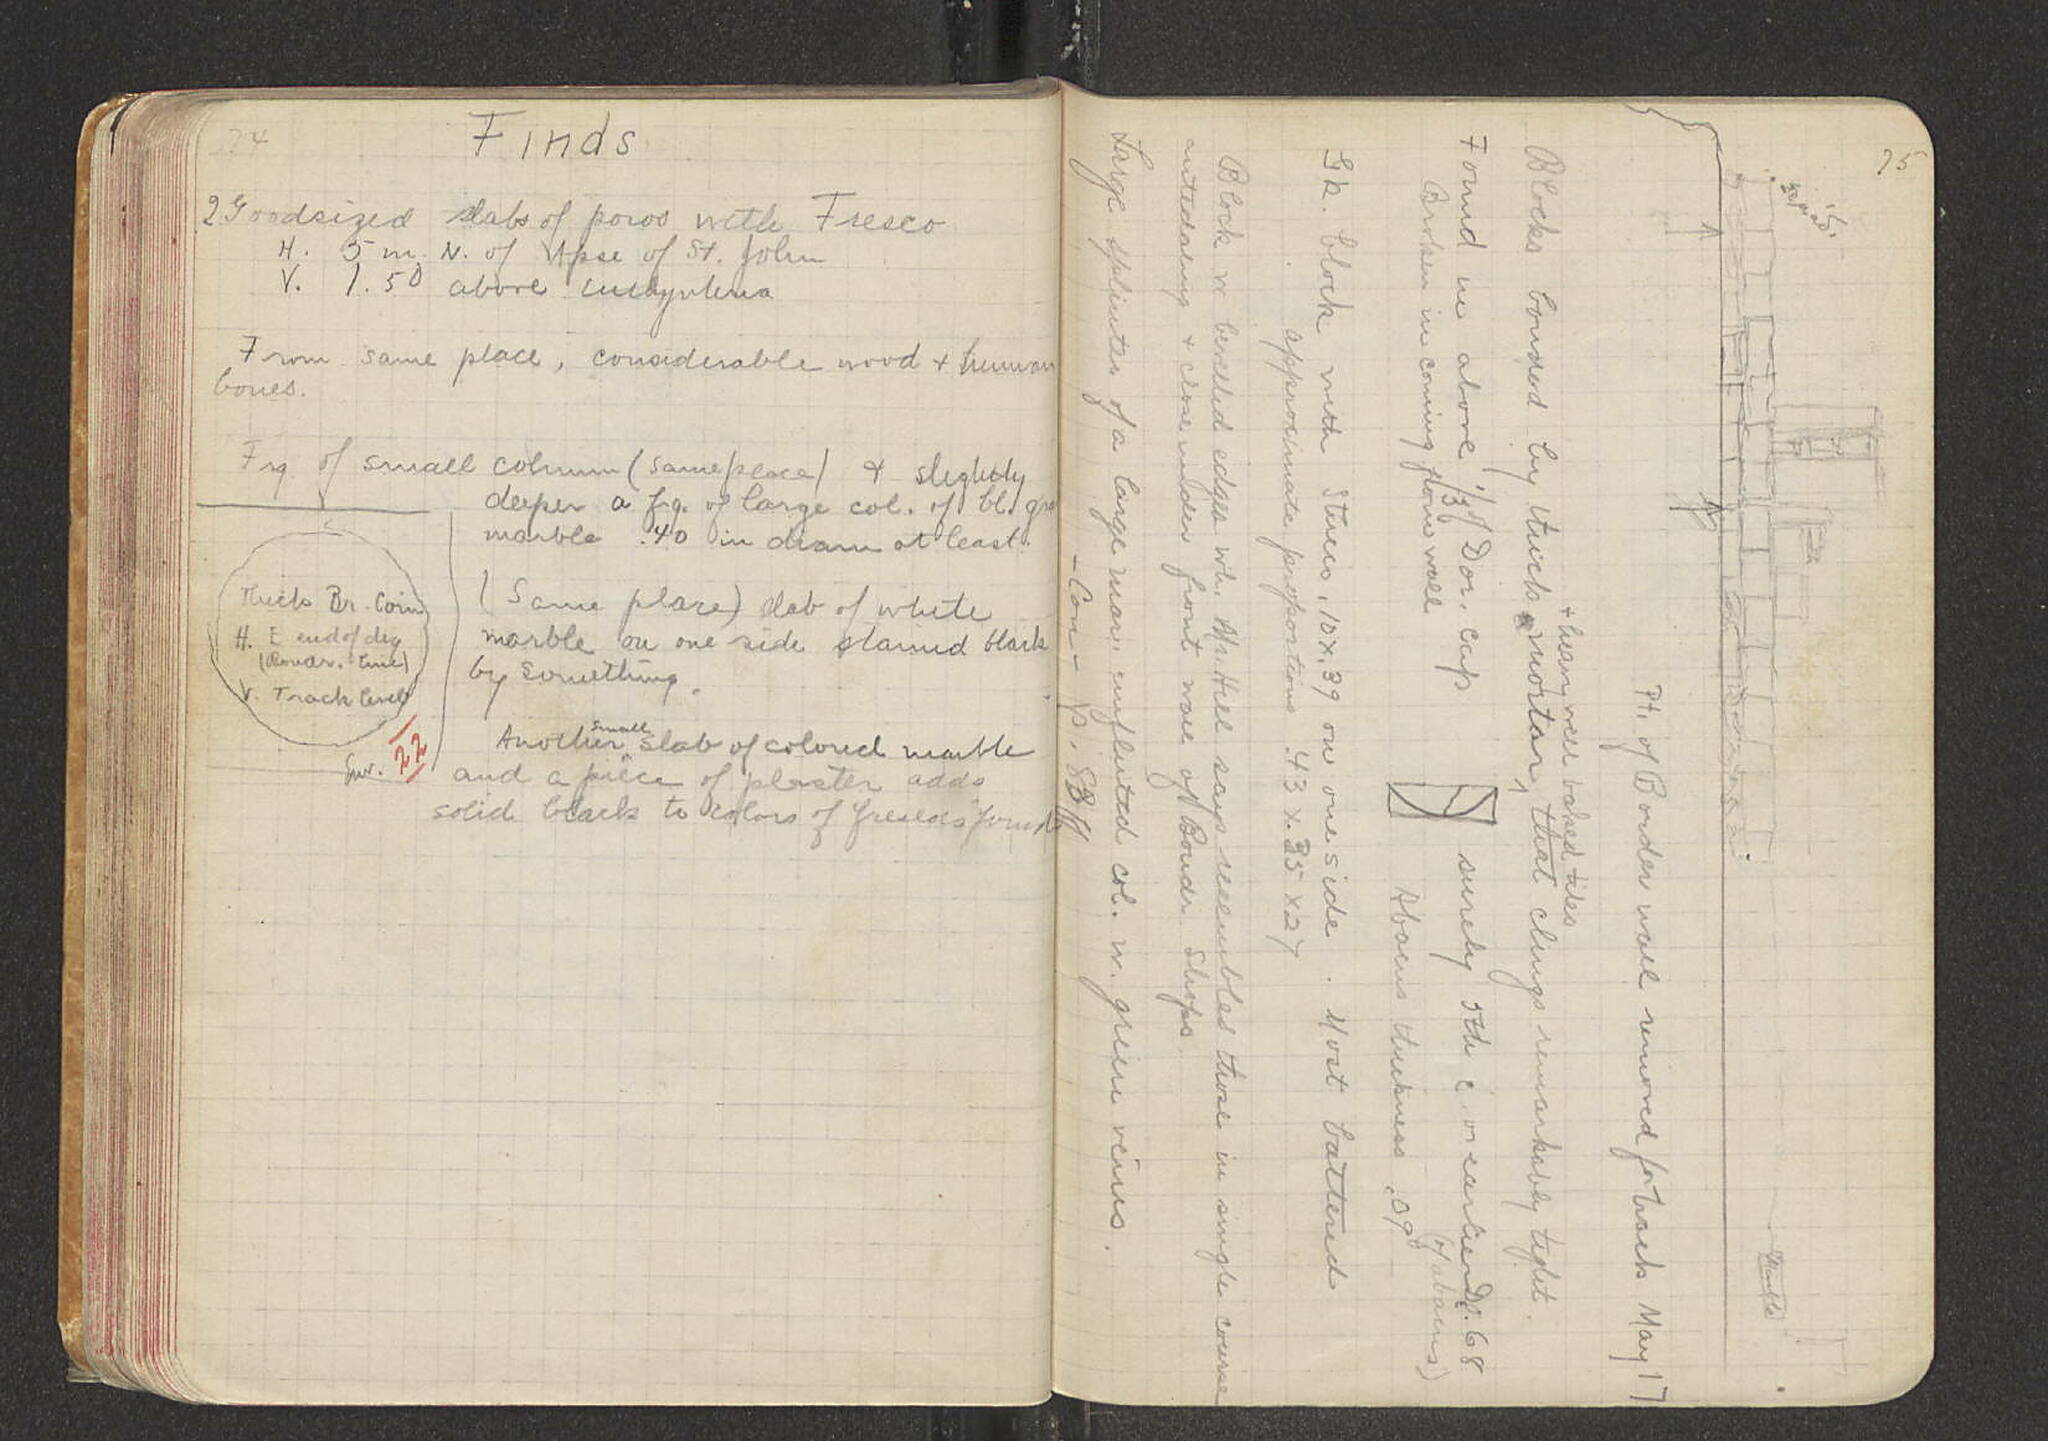 74
Finds
2 Goodsized slabs of poros with Fresco
H. 5 m. N. of Apse of St. John
V. 1.50 above
From same place, considerable wood + human
bones.
Frg of small column (same place) & slightly
deeper a frg. of large col. of bl. gra
marble .40 in diam at least.
(Same place) slab of white
marble on one side stained black
by something.
Another small slab of colored marble
and a piece of plaster adds
solid black to colors of frescoes found
Thick Br. Coin
H. E end of dig
(Boudr. line)
V. Track level
Inv. 22
75
Marble
Pt. of Bouder wall removed for track May 17
+ hian well baked tiles
Blocks bonded by thick mortar, that clings remarkably tight.
Found in above 1/3 of Dor. cap surely 5th c. or earlier D. .68
(of abacus)
Broken in coming from wall
Abacus thickness .09
Gk. block with stucco, 10 x .39 on one side. Most battered
approximate proportions .43 x .35 x 27
Block w bevelled edges wh. Mr Hill says resembles those in single course
antedating & close under front wall of Boudr. Shops.
Large splinter of a large mar. unfluted col. w. green veins.
- Con - p. 83 ff